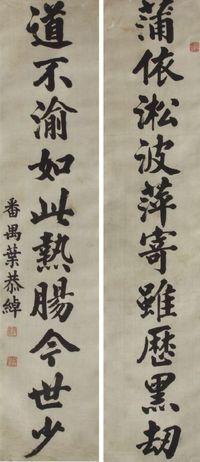 蒲依淞波萍寄雖歷黑劫
道不渝如此熱腸今世少
番禺葉恭綽